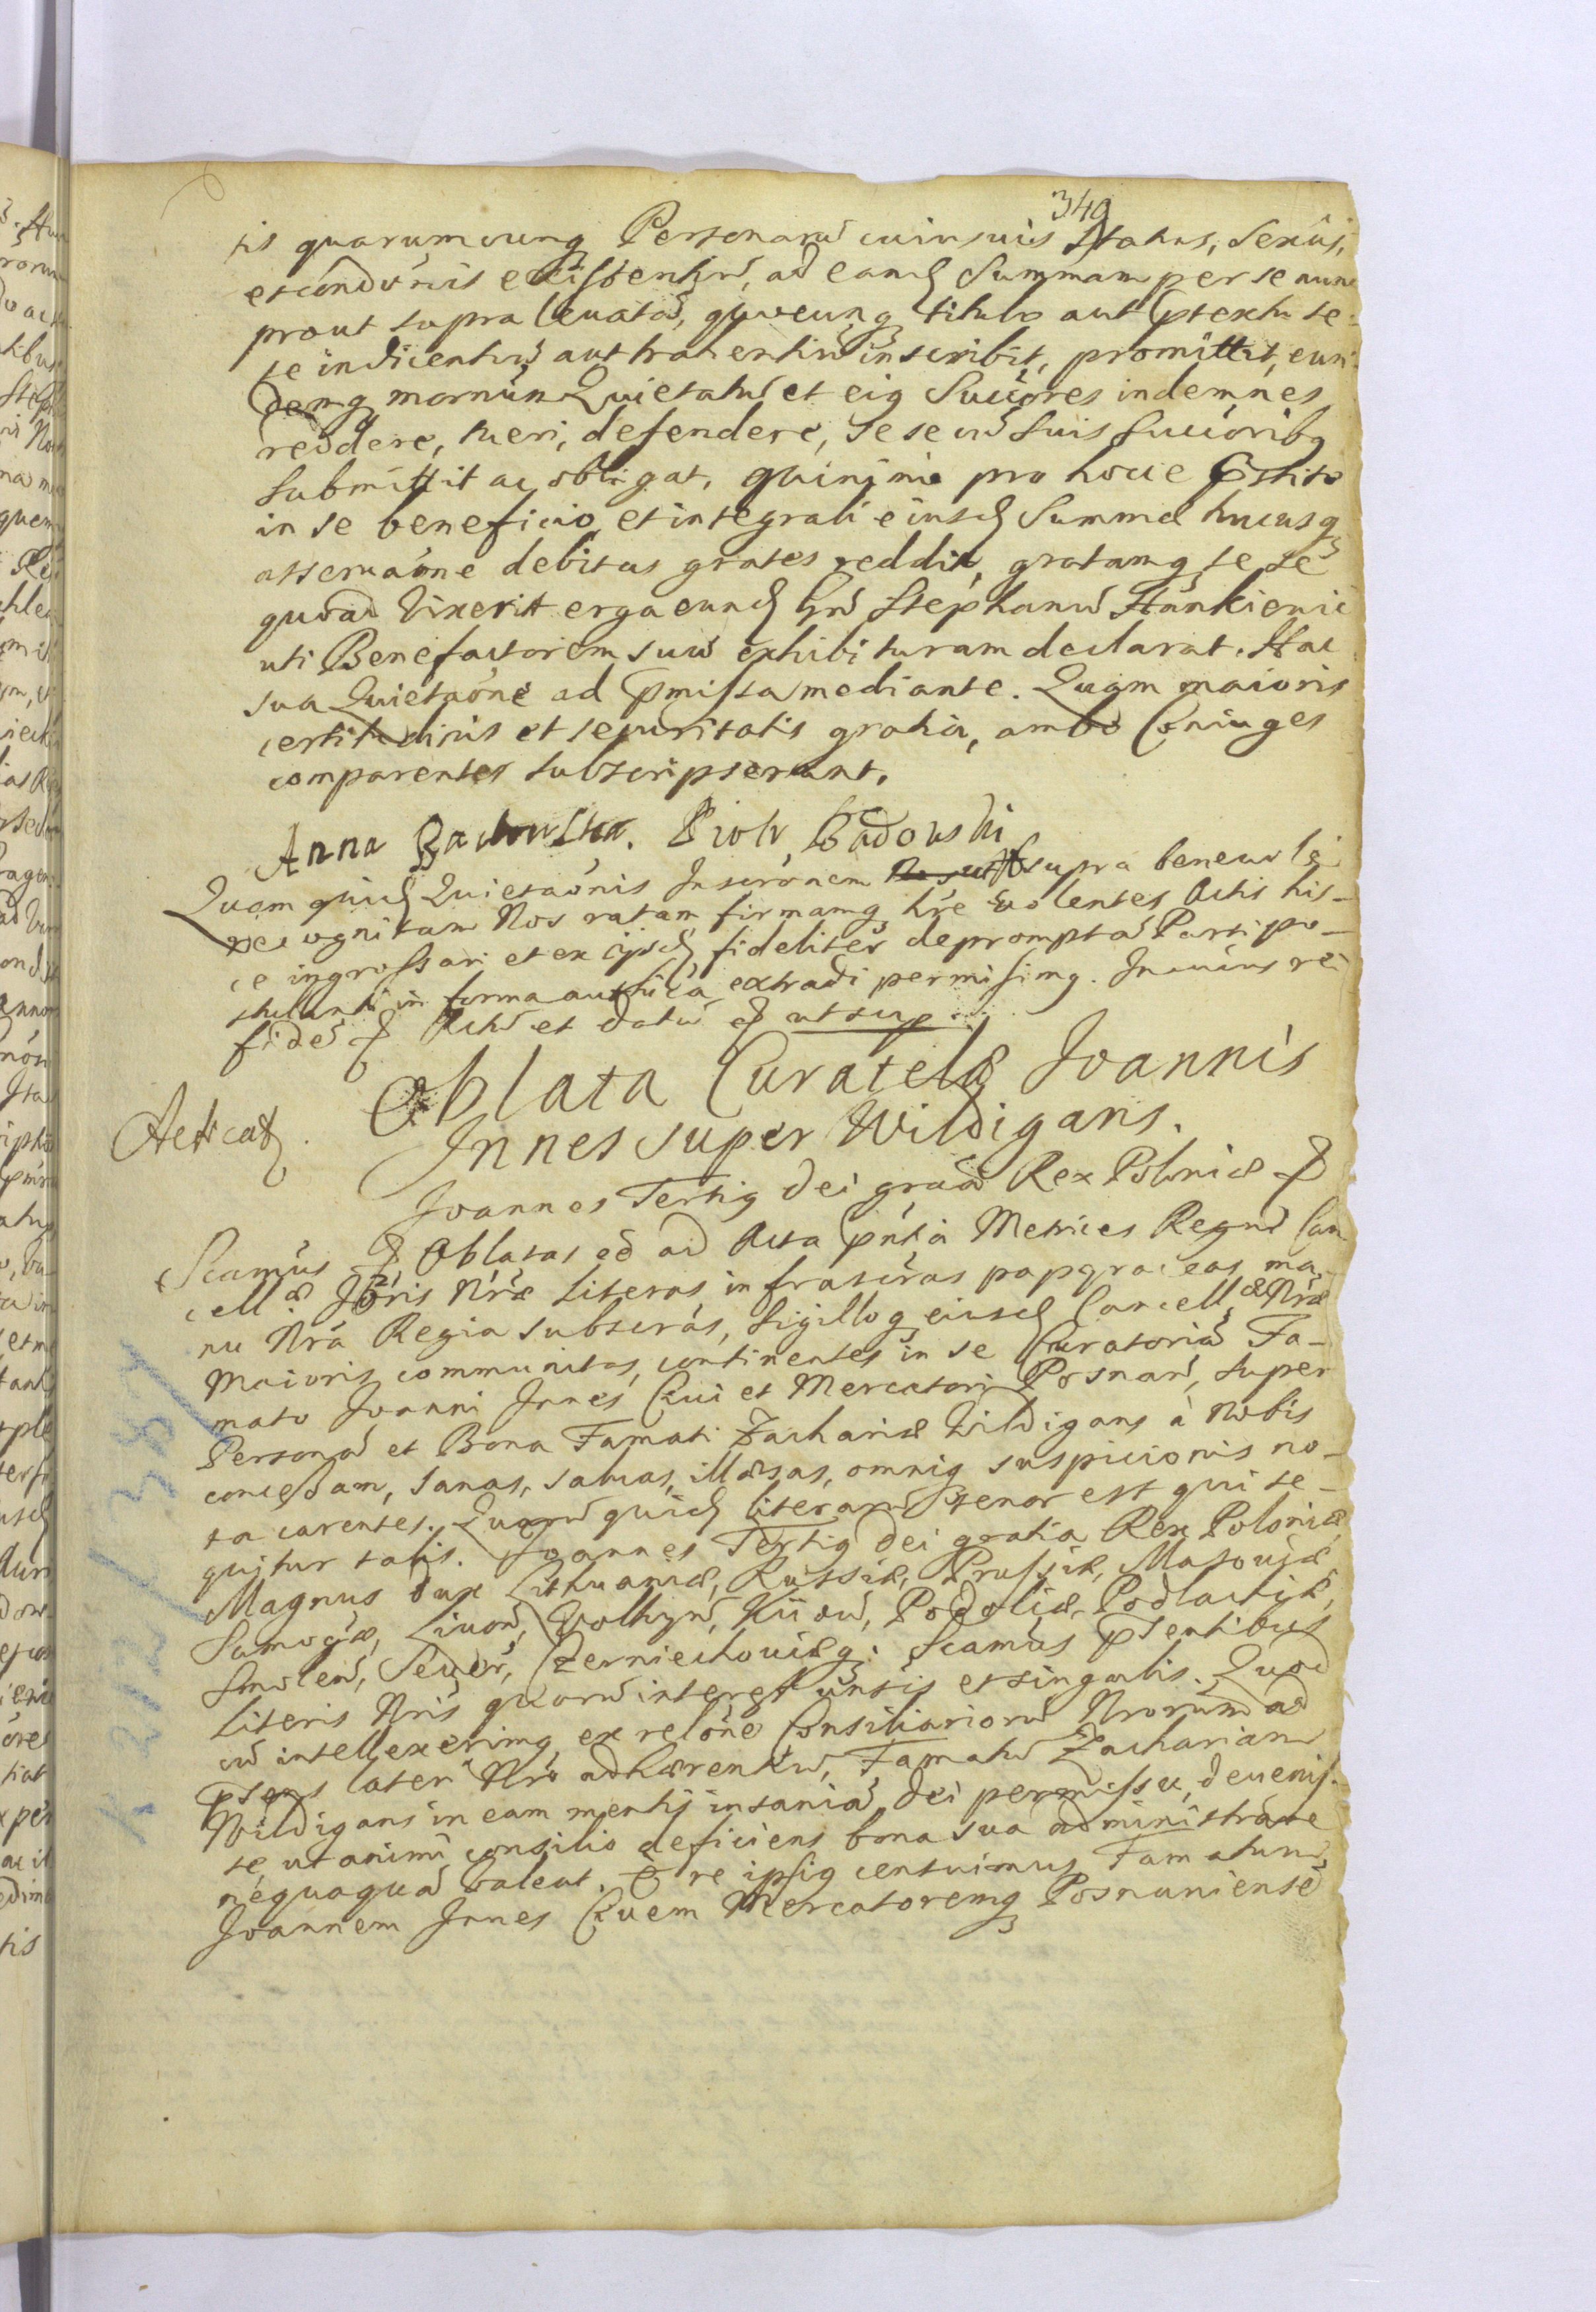 349
tis quarumcunq Personarū cuiusvis Status, Sexûs,
et condōnis existentiū, ad eand Summam per se nunc
prout supra levatā, quocunq titulo aut Ptextu se-
se indicentiū aut trahentiū inscribit, promittit, eun-
demq mornūn Quietatū et eiq Succōres indemnes
reddere, tueri, defendere, Se se cū Suis Succōribq
Submittit ac obligat, quinimo pro hocce Pstito
in se beneficio, et integrali eiusd Summæ hucusq
asservaōne debitas grates reddit, gratamq se se
quoad vixerit erga eund Gnd Stephanū Hankiewic
uti Benefactorem suū exhibituram declarat. Hac
sua Quietaōne ad Pmissa mediante. Quam maioris
certitudinis et securitatis gratia, ambo Coniuges
comparentes subscripserunt.
Anna Badowska. Piotr Badowski
Quam quid Quietaōnis Inscrōnem supra benevole
recognitam Nos ratam firmamq hře volentes Actis his-
ce ingrossari et ex ijsd fideliter depromptā Parti po-
stulanti in forma authca extradi permisimq. In cuius rei
fidē Actū et datū ut sup.
Oblata Curatelæ Joannis
Innes super Wildigans.
Joannes Tertiq Dei grāa Rex Poloniæ
Scamus Oblatas eē ad Acta Pntia Metrices Regni Can
cellæ Nræ Literas infrascrās papyraceas, ma-
nu Nrā Regia subscrās, Sigilloq eiusd Cancellæ Nræ
Maioris communitas, continentes in se Curatoriā Fa-
mato Joanni Innes Civi et Mercatori Posnan, super
Personā et Bona Famati Zachariæ Wildigans à Nobis
concessam, sanas, salvas, illæsas, omniq suspicionis no-
ta carentes. Quarū quid literarū tenor est qui se-
quitur talis. Joannes Tertiq Dei gratia Rex Poloniæ,
Magnus Dux Lithuaniæ, Russiæ, Prussiæ, Masoviæ,
Samogiæ, Livon, Volhyn, Kiiov, Podoliæ, Podlachiæ,
Smolen, Sever, Czerniechoviæq. Scamus Psentibus
literis Nris quorū interest unsis et singulis. Quod
cū intellexerimq ex relōne Consiliariorū Nrorum ad
Psens lateri Nrō adhærentiū, Famatū Zachariam
Wildigans in eam mentis insaniā Dei permissu, devenis-
se, ut animi consilio deficiens bona sua administrare
nequaquā valeat. E re ipsiq censuimus Famatum
Joannem Innes Civem Mercatoremq Posnaniensē